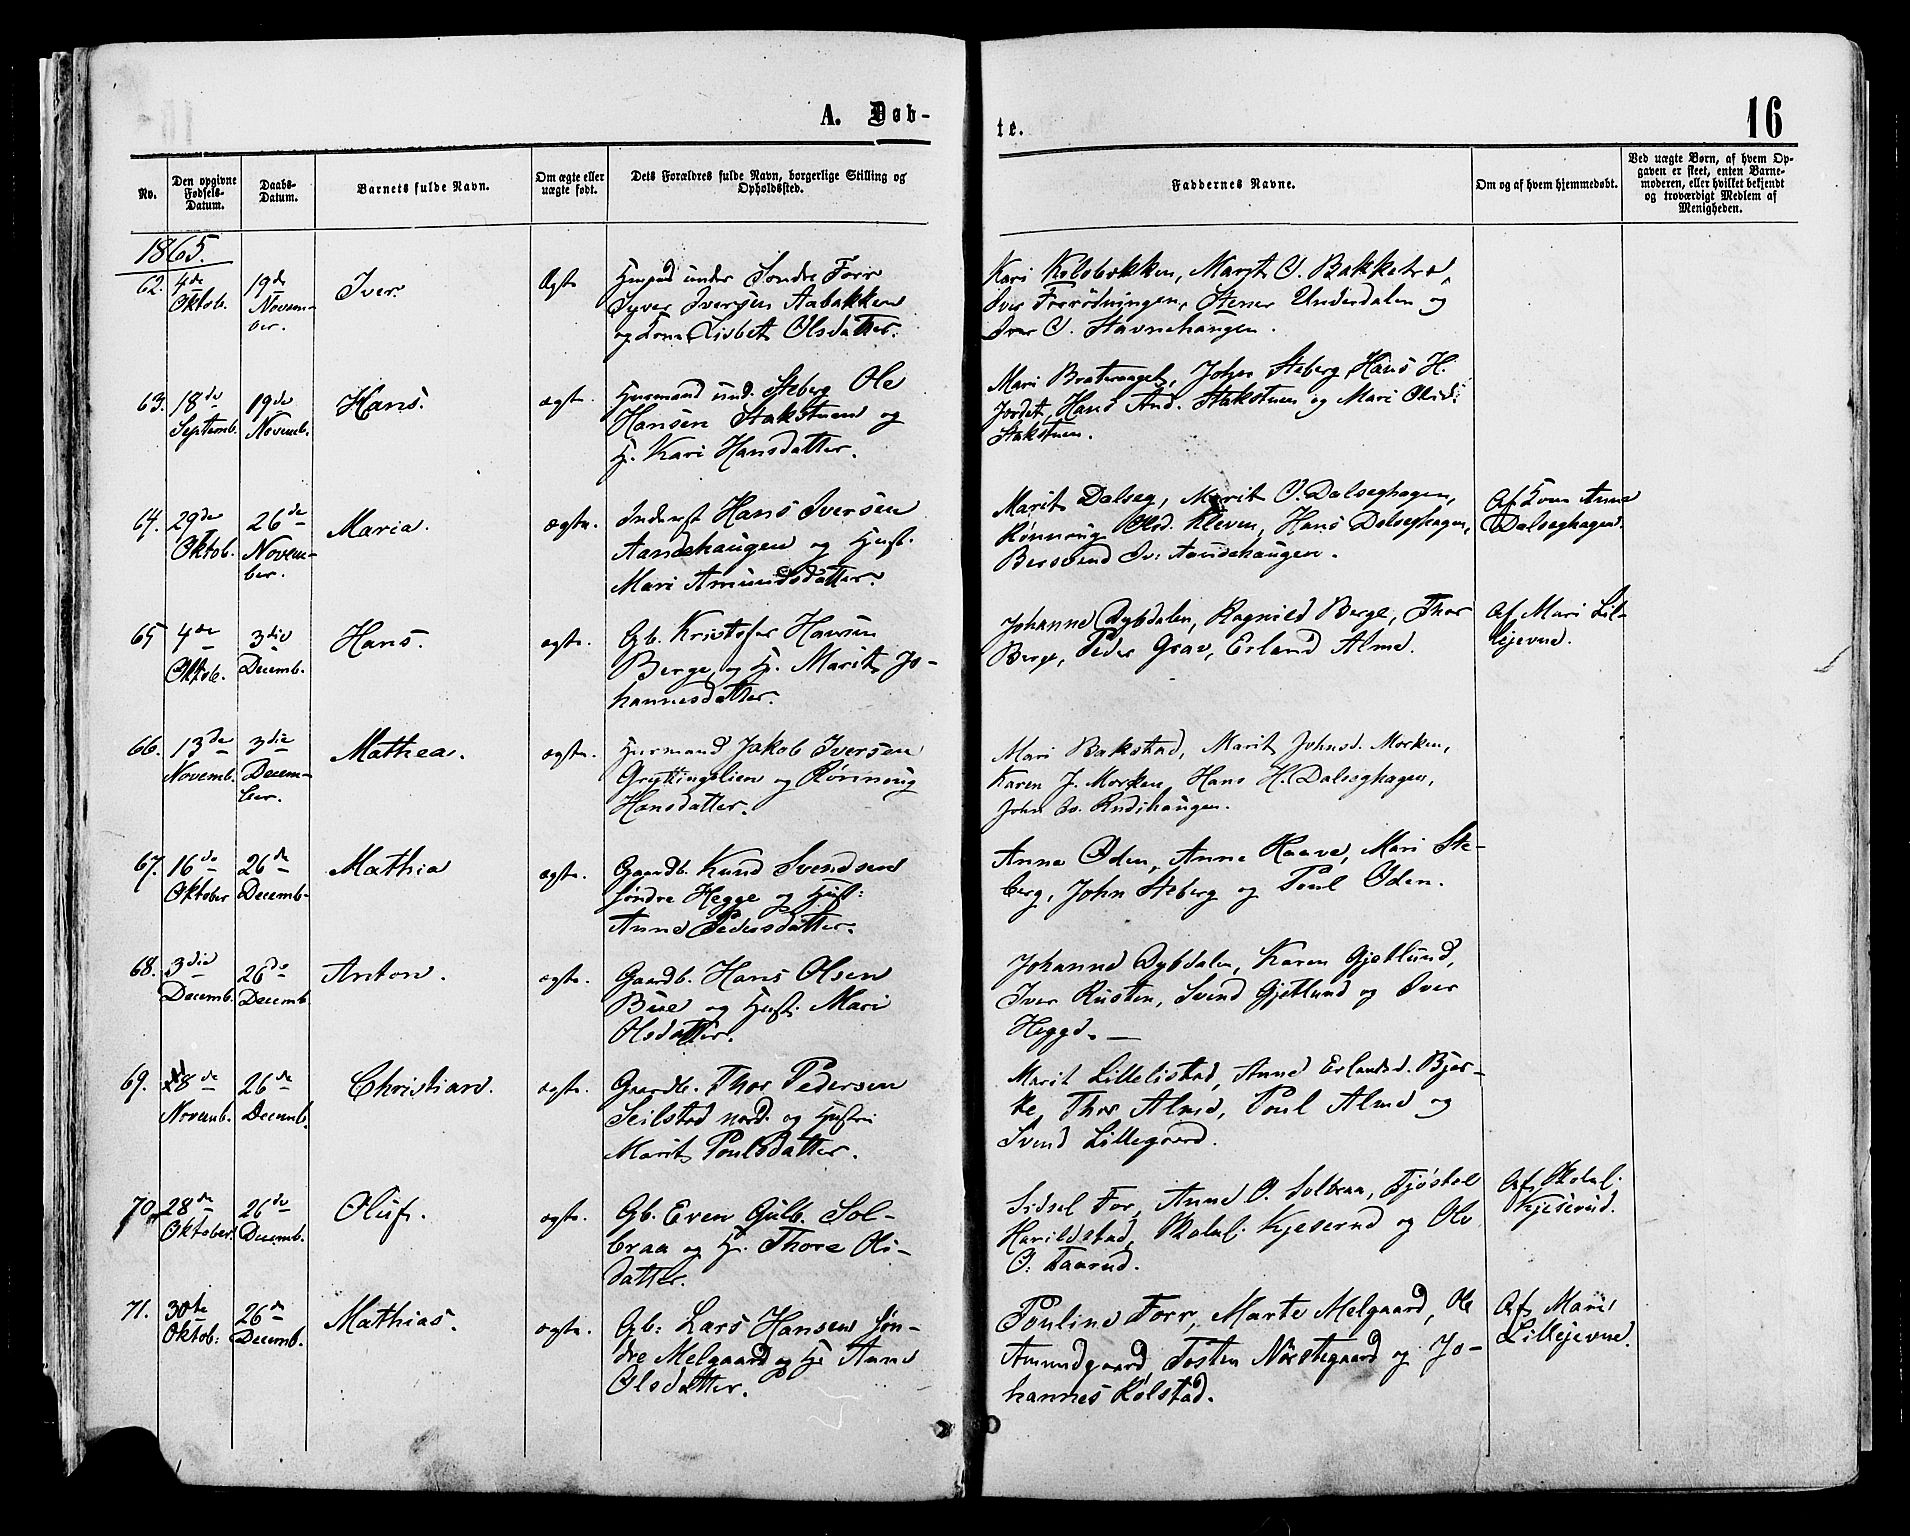 A. Døb-
te.
16
No.
Den opgivne Fødsels-Datum.
Daabs-Datum.
Barnets fulde Navn.
Om ægte eller uægte født.
Dets Forældres fulde Navn, borgerlige Stilling og Opholdssted.
Faddernes Navne.
Om og af hvem hjemmedøbt.
Ved uægte Børn, af hvem Op-
gaven er skeet, enten Barne-
moderen, eller hvilket bekjendt
og troværdigt Medlem af
Menigheden.
1865.
62. 4de Oktob. 19de Novem-ber. Iver. Ægte
under Søndre Forr
Syver Iversen Aabakken
og Kone Lisbet Olsdatter.
Kari Kolobækken, Marit O. Bakketrø,
Iver Forrødningen, Stener Underdalen og
Iver O. Stavnehaugen.
63. 18de Septemb. 19de Novemb. Hans. ægte.
Husmand und. Steberg Ole
Hansen Stakstuen og
H. Kari Hansdatter.
Mari Bratevanget, John Steberg, Hans H.
Jordet, Hans And. Stakstuen og Mari Olsd.
Stakstuen.
64. 29de Oktob. 26de Novem-ber. Maria. ægte.
Inderst Hans Iversen
Aandehaugen og Hust.
Mari Amundsdatter.
Marit Dalseg, Marit O. Dalseghagen,
Rønnoug Olsd. Kleven, Hans Dalseghagen,
Bersvend Iv: Aandehaugen.
Af Kone Anne
Dalseghagen.
65 4de Oktob. 3die Decemb. Hans. ægte.
Gb. Kristofer Hansen
Berge, og H. Marit Jo-
hannesdatter.
Johanne Dybdalen, Ragnild Berge, Thor
Berge, Peder Grav, Erland Alme.
Af Mari Lil-
lejevne.
66. 13de Novemb. 3die Decem-ber. Mathea. ægte.
Husmand Jakob Iversen
Gryttingslien og Rønnoug
Hansdatter.
Mari Bakstad, Marit Johnsd. Morken,
Karen J. Morken, Hans H. Dalseghagen,
John Iv. Rudihaugen.
67. 16de Oktober 26de Decemb. Mathia ægte.
Gaardb. Knud Svendsen
søndre Hegge og Hust:
Anne Pedersdatter.
Anne Oden, Anne Haave, Mari Ste-
berg, John Steberg og Poul Oden.
68. 3die Decemb. 26de Decemb. Anton. ægte.
Gaardb. Hans Olsen
Bue og Hust. Mari
Olsdatter.
Johanne Dybdalen, Karen Gjetlund,
Iver Rusten, Svend Gjetlund og Iver
Hegge.
69. 28de Novemb. 26de Decemb. Christian. ægte.
Gaardb. Thor Pedersen
Seilstad nord. og Hustru
Marit Poulsdatter.
Marit Lillelistad, Anne Erlandsd. Bjer-
ke, Thor Alme, Poul Alme og
Svend Lillegaard.
70. 28de Oktober. 26de Decemb. Oluf. ægte.
Gb. Even Gulb. Sol-
braa og H. Thore Ols-
datter.
Sidsel For, Anne O. Solbraa, Tjøstel
Harildstad, Skolel. Kjeserud og Ole
O. Taarud.
Af Skolel.
Kjeserud.
71. 30te Oktob. 26de Decemb. Mathias. ægte.
Gb: Lars Hansen Søn-
dre Melgaard og H. Anne
Olsdatter.
Pouline Forr, Marte Melgaard, Ole
Amundgaard, Tosten Nørstegaard og Jo-
hannes Kolstad.
Af Mari
Lillejevne.